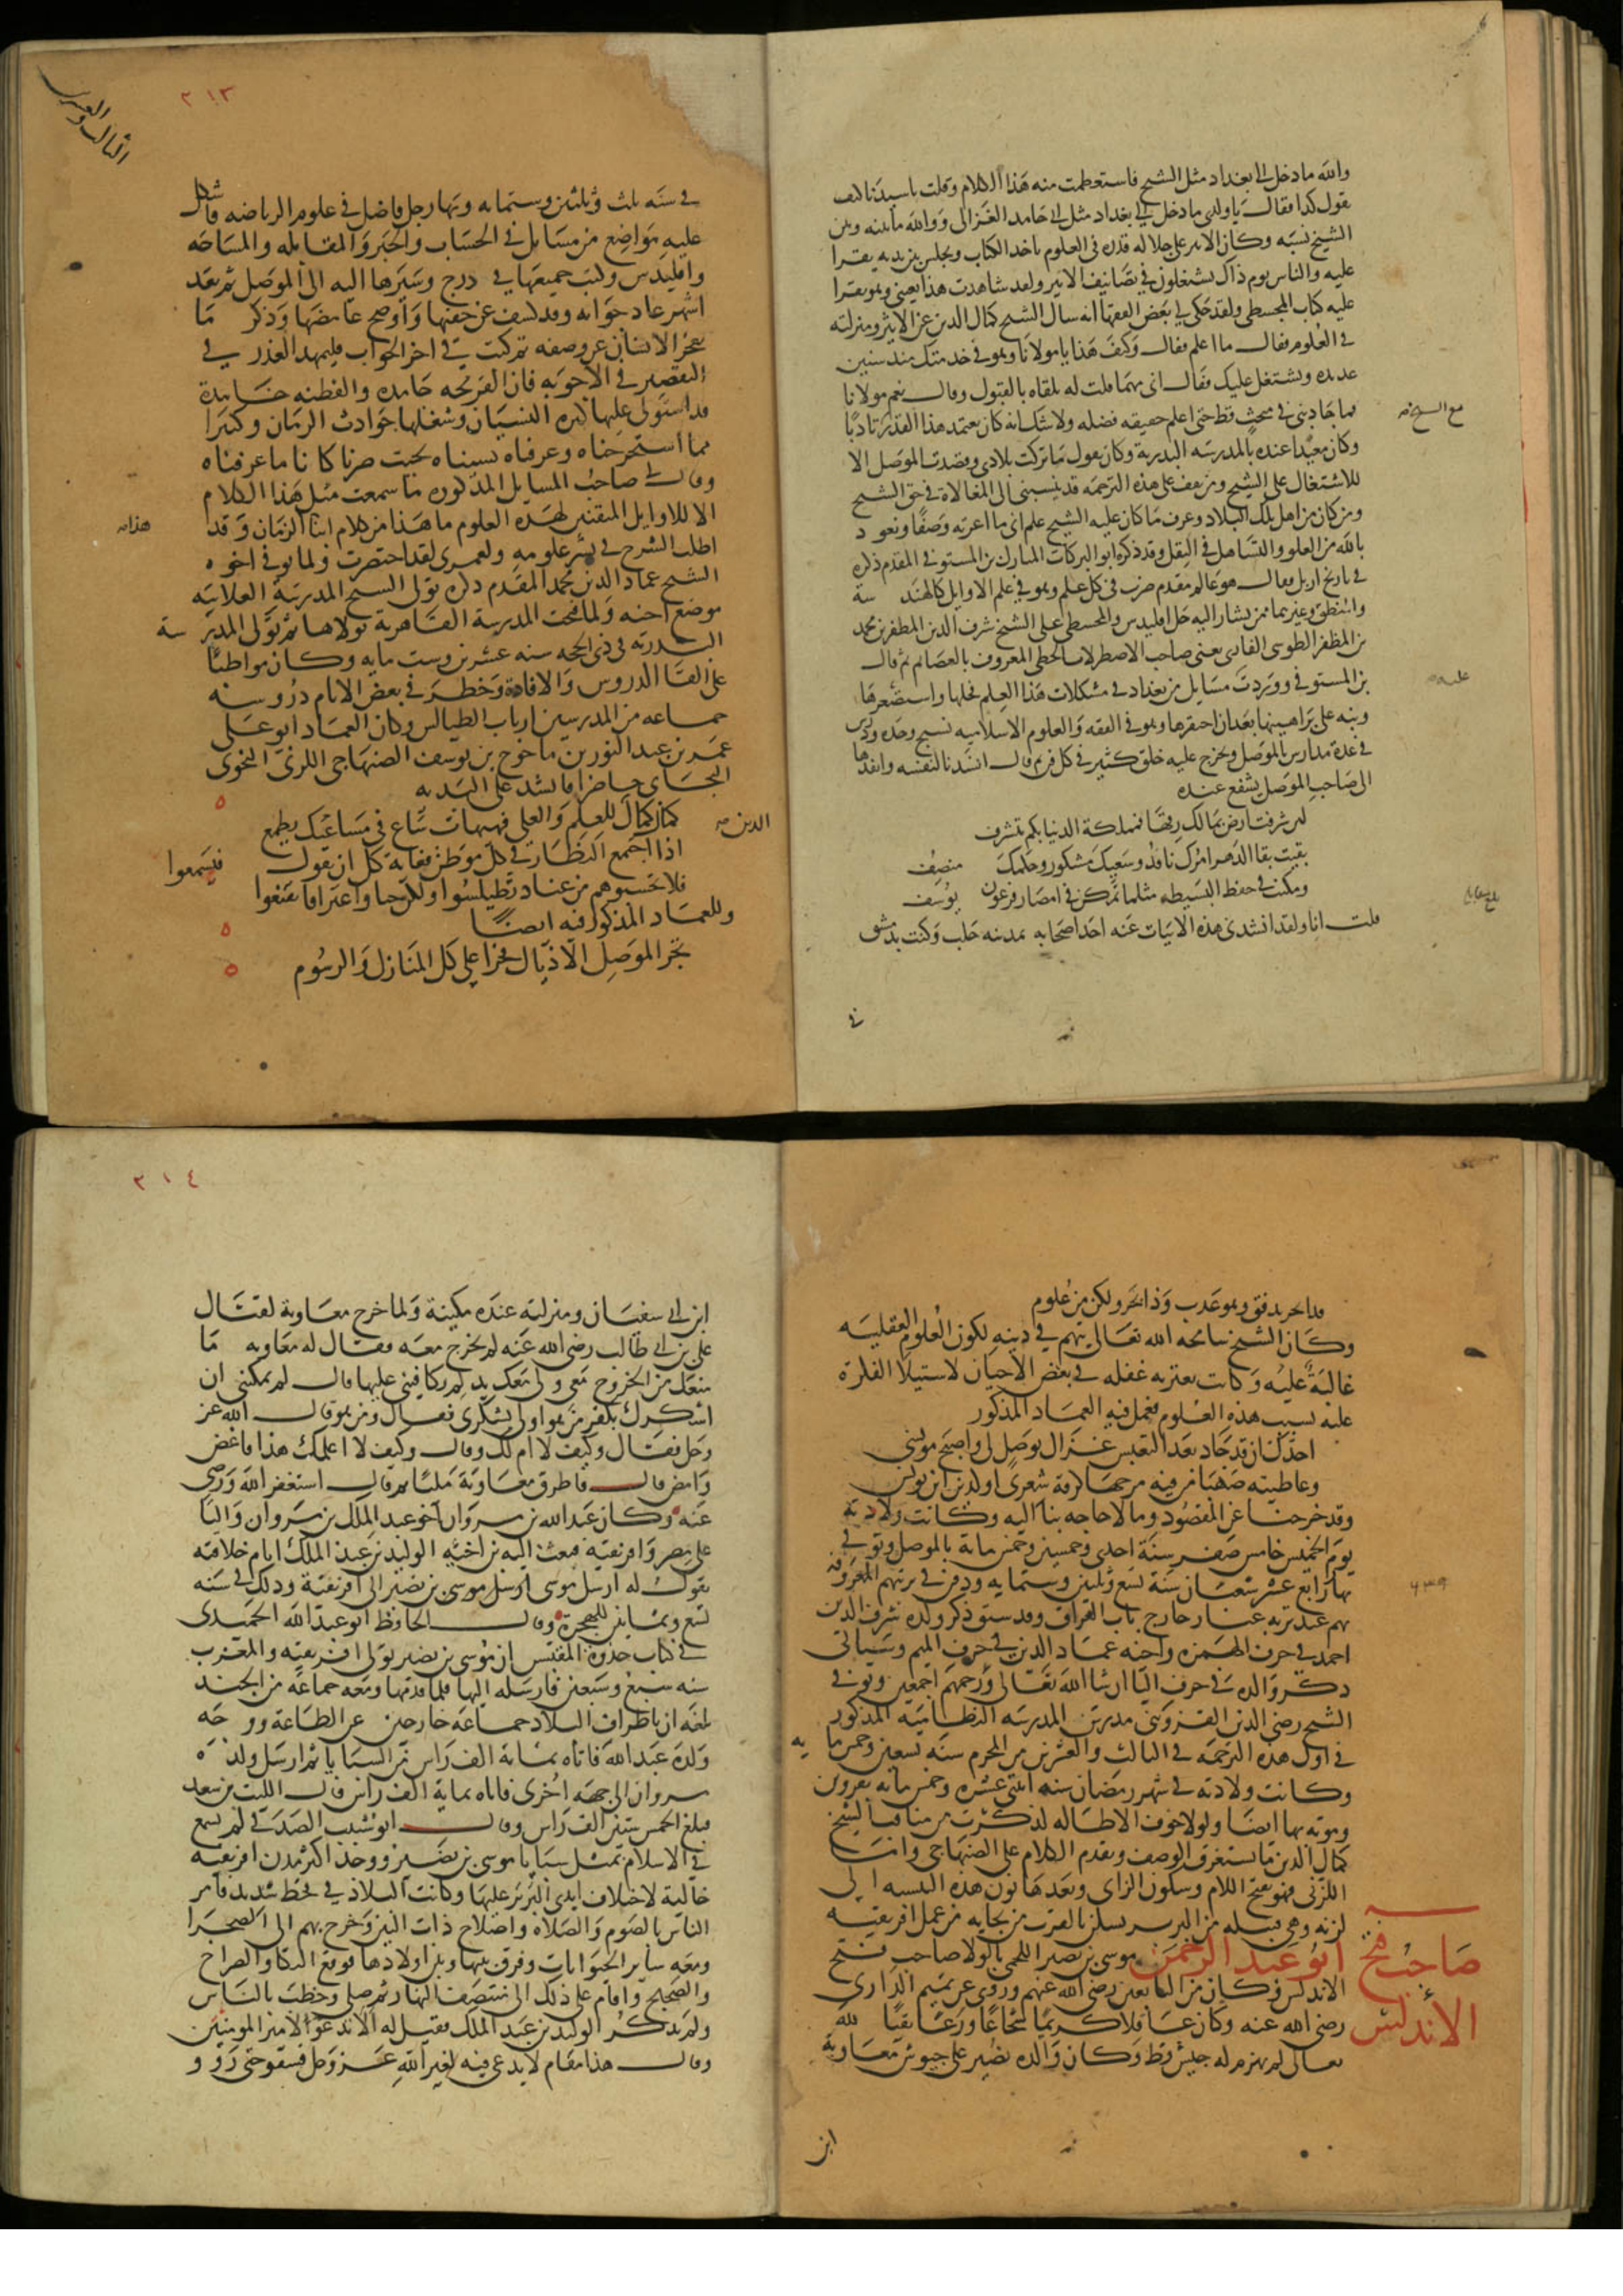 والله ما دخل الى بغداد مثل الشيخ فاستعظمت منه هذا الكلام وقلت يا سيدنا كيف
تقول كذا فقال يا ولدى ما دخل الى بغداد مثل ابى حامد الغزالى ووالله ما بينه وبين
الشيخ نسبه وكان الاثير على جلاله قدره فى العلوم ياخد الكتاب ويجلس بين يديه يقرا
عليه والناس يوم ذاك يشتغلون فى تصانيف الاثير ولقد شاهدت هذا بعينى وهو يقرا
عليه كتاب المجسطى ولقد حكى لى بعض الفقها انه سال الشيخ كمال الدين عن الاثير ومنزلته
فى العلوم فقال ما اعلم فقال وكيف هذا يا مولانا وهو فى خدمتك منذ سنين
عديده ويشتغل عليك فقال انى مهما قلت له تلقاه بالقبول وقال نعم مولانا
فما جاذبنى فى مبحث قط حتى اعلم حقيقه فضله ولا شك انه كان يعتمد هذا القدر تادبا
مع الشيخ
وكان معيدا عنده بالمدرسه البدرية وكان يقول ما تركت بلادى وقصدت الموصل الا
للاشتغال على الشيخ ومن يقف على هذه الترجمه قد ينسبنى الى المغالاة فى حق الشيخ
ومن كان من اهل تلك البلاد وعرف ما كان عليه الشيخ علم انى ما اعرته وصفا ونعوذ
بالله من الغلو والتساهل فى النقل وقد ذكره ابو البركات المبارك بن المستوفى المقدم ذكره
فى تاريخ اربل فقال هو عالم مقدم ضرب فى كل علم وهو فى علم الاوايل كالهندسة
والمنطق وغيرهما ممن يشار اليه حل اقليدس والمجسطى على الشيخ شرف الدين المظفر بن محمد
بن المظفر الطوسى الفارى يعنى صاحب الاصطرلاب الخطى المعروف بالعصا ثم قال
بن المستوفى ووردت مسايل من بغداد فى مشكلات هذا العلم فحلها واستصغرها
ونبه على براهينها بعد ان احتقرها وهو فى الفقه والعلوم الاسلاميه نسيج وحده ودرس
فى عدة مدارس بالموصل وتخرج عليه خلق كثير فى كل فن ثم قال انشدنا لنفسه وانفدها
الى صاحب الموصل يشفع عنده
لين شرفت ارض بمالك رقها فمملكة الدنيا بكم تتشرف
بقيت بقا الدهر امرك نافذ وسعيك مشكور وحكمك منصف
ومكنت فى حفظ البسيطه مثلما تمكن فى امصار فرعون يوسف
قلت انا ولقد انشدنى هذه الابيات عنه احد اصحابه بمدينه حلب وكنت بدمشق
فى
٢١٣
الثالث والعشرين
فى سنه ثلث وثلثين وستمايه وبها رجل فاضل فى علوم الرياضه فاشكل
عليه مواضع من مسايل فى الحساب والجبر والمقابله والمساحه
واقليدس وكتب جميعها فى درج وسيرها اليه الى الموصل ثم بعد
اشهر عاد جوابه وقد كشف عن خفيها واوضح غامضها وذكر ما
يعجز الانسان عن وصفه ثم كتب فى اخر الجواب فليمهد العذر فى
التقصير فى الاجوبه فان القريحه جامده والفطنه خامدة
قد استولى عليها كثرة النسيان وشغلتها حوادث الزمان وكثيرا
مما استخرجناه وعرفناه نسيناه بحيث صرنا كانا ما عرفناه
وقال لى صاحب المسايل المذكوره ما سمعت مثل هذا الكلام
الا للاوايل المتقنين لهذه العلوم ما هذا من كلام ابنا الزمان وقد
اطلب الشرح فى نشر علومه ولعمرى لقد اختصرت ولما توفى اخوه
الشيخ عماد الدين محمد المقدم ذكره تولى الشيخ المدرسة العلاييه
موضع اخيه ولما فتحت المدرسة القاهرية تولاها ثم تولى المدرسة
البدريه فى ذى الحجه سنه عشرين وست مايه وكان مواظبا
على القا الدروس والافادة وحضر فى بعض الايام دروسه
جماعه من المدرسين ارباب الطيالس وكان العماد ابو على
عمر بن عبد النور بن ماخوخ بن يوسف الصنهاجى اللزنى النحوى
البجاى حاضرا فانشد على البديه
كمال كمال الدين للعلم والعلى فهيهات ساع فى مساعيك يطمع
اذا اجتمع النظار فى كل موطن فغاية كل ان يقول فيسمعوا
فلا تحسبوهم من عناد تطيلسوا ولكن حيا واعترافا تقنعوا
وللعماد المذكور فيه ايضا
تجر الموصل الاذيال فخرا على كل المنازل والرسوم
فذا بحر تدفق وهو عذب وذا بحر ولكن من علوم
وكان الشيخ سامحه الله تعالى يتهم فى دينه لكون العلوم العقليه
غالبة عليه وكانت تعتريه غفله فى بعض الاحيان لاستيلا الفكرة
عليه بسبب هذه العلوم فعمل فيه العماد المذكور
اجدك ان قد جاد بعد التعبس غزال بوصل لى واصبح مونسى
وعاطيته صهبا من فيه مزجها كرقة شعرى او كدين ابن يونس
وقد خرجنا عن المقصود وما لا حاجه بنا اليه وكانت ولادته
يوم الخميس خامس صفر سنة احدى وخمسين وخمس ماية بالموصل وتوفى
بها رابع عشر شعبان سنة تسع وثلثين وستمايه ودفن فى تربتهم المعروفه
٦٣٩
بهم عند تربه عناز خارج باب العراق وقد سبق ذكر ولده شرف الدين
احمد فى حرف الهمزه واخيه عماد الدين فى حرف الميم وسياتى
ذكر والده فى حرف اليا ان شا الله تعالى ورحمهم اجمعين وتوفى
الشيخ رضى الدين القزوينى مدرس المدرسه النظاميه المذكور
فى اول هذه الترجمه فى الثالث والعشرين من المحرم سنه تسعين وخمس مايه
وكانت ولادته فى شهر رمضان سنه اثنتى عشره وخمس مائه بقزوين
وموته بها ايضا ولولا خوف الاطاله لذكرت من مناقب الشيخ
كمال الدين ما يستغرق الوصف وتقدم الكلام على الصنهاجى واما
اللزنى فهو بفتح اللام وسكون الزاى وبعدها نون هذه النسبه الى
لزنه وهى قبيله من البربر يسكن بالقرب من بجايه من عمل افريقيه
صاحب فتح الأندلس
ابو عبد الرحمن موسى بن نصير اللخمى بالولا صاحب فتح
الاندلس وكان من التابعين رضى الله عنهم وروى عن تميم الدارى
رضى الله عنه وكان عاقلا كريما شجاعا ورعا تقيا لله
تعالى لم يهزم له جيش قط وكان والده نصير على جيوش معاوية
ابن
٢١٤
ابن ابى سفيان ومنزلته عنده مكينة ولما خرج معاوية لقتال
على بن ابى طالب رضى الله عنه لم يخرج معه فقال له معاويه ما
منعك من الخروج معى ولى عندك يد لم تكافينى عليها فقال لم يمكنى ان
اشكرك بكفر من هو اولى بشكرى فقال ومن هو قال الله عز
وجل فقال وكيف لا ام لك وقال وكيف لا اعلمك هذا فاغض
وامض قال فاطرق معاوية مليا ثم قال استغفر الله ورضى
عنه وكان عبد الله بن مروان اخو عبد الملك بن مروان واليا
على مصر وافريقية فبعث اليه بن اخيه الوليد بن عبد الملك ايام خلافته
يقول له ارسل موسى ارسل موسى بن نصير الى افريقية وذلك فى سنه
تسع وثمانين للهجرة وقال الحافظ ابو عبد الله الحميدى
فى كتاب جذوة المقتبس ان موسى بن نصير تولى افريقيه والمغرب
سنه سبع وسبعين فارسله اليها فلما قدمها ومعه جماعه من الجند
بلغه ان باطراف البلاد جماعة خارجين عن الطاعة ووجه
ولده عبد الله فاتاه بماية الف راس من السبايا ثم ارسل ولده
مروان الى جهه اخرى فاتاه بماية الف راس قال الليث بن سعد
فبلغ الخمس ستين الف راس وقال ابو شبيب الصدفى لم يسمع
فى الاسلام بمثل سبايا موسى بن نصير ووجد اكثر مدن افريقيه
خالية لاختلاف ايدى البربر عليها وكانت البلاد فى قحط شديد فامر
الناس بالصوم والصلاة واصلاح ذات البين وخرج بهم الى الصحرا
ومعه ساير الحيوانات وفرق بينها وبين اولادها فوقع البكا والصراخ
والضجيج واقام على ذلك الى منتصف النهار ثم صلى وخطب بالناس
ولم يذكر الوليد بن عبد الملك فقيل له الا تدعو لامير المومنين
وقال هذا مقام لا يدعى فيه لغير الله عز وجل فسقوا حتى رووا